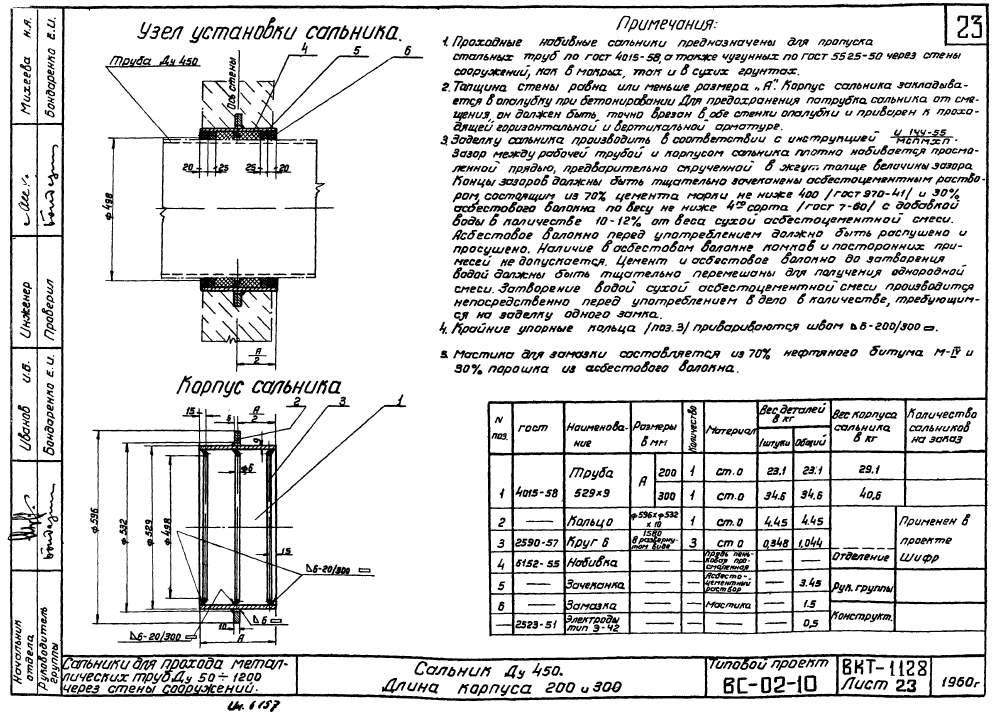 23
Узел установки сальника.
Труба Ду 450
Ось стены
4
5
6
20
25
25
20
ф 498
А
2
Корпус сальника
15
5
А
2
2
3
1
6
ф6
ф596
ф532
ф529
ф498
15
6-20/300
10
6-20/300
А
6
Примечания:
1. Проходные набивные сальники предназначены для пропуска
стальных труб по гост 4015-58, а также чугунных по гост 5525-50 через стены
сооружений, как в мокрых, так и в сухих грунтах.
2. Толщина стены равна или меньше размера „А". Корпус сальника закладыва-
ется в опалубку при бетонировании Для предохранения патрубка сальника от сме-
щения он должен быть точно врезан в обе стенки опалубки и приварен к прохо-
дящей горизонтальной и вертикальной арматуре.
3. Заделку сальника производить в соответствии с инструкцией И 144-55
МСПМХП
Зазор между рабочей трубой и корпусом сальника плотно набивается просмо-
ленной прядью, предварительно скрученной в жгут толще величины зазора.
Концы зазоров должны быть тщательно зачеканены асбестоцементным раство-
ром, состоящим из 70% цемента марки не ниже 400 /гост 970-41/ и 30%
асбестового волокна по весу не ниже 4го сорта /гост 7-60/ с добавкой
воды в количестве 10-12% от веса сухой асбестоцементной смеси.
Асбестовое волокно перед употреблением должно быть распушено и
просушено. Наличие в асбестовом волокне комков и посторонних при-
месей не допускается. Цемент и асбестовое волокно до затворения
водой должны быть тщательно перемешаны для получения однородной
смеси. Затворение водой сухой асбестоцементной смеси производится
непосредственно перед употреблением в дело в количестве, требующим-
ся на заделку одного замка.
4. Крайние упорные кольца /поз. 3/ привариваются швом 6-200/300
5. Мастика для замазки составляется из 70% нефтяного битума М-IV и
30% порошка из асбестового волокна.
N поз. гост Наименова-ние Размеры в мм Количество Материал Вес деталей в кг 1 штуки Общий Вес корпуса сальника в кг Количество сальников на заказ
1 4015-58 Труба 529×9 А 200 1 ст.0 23.1 23.1 29.1
300 1 ст.0 34.6 34.6 40,6
2 — Кольцо ф596×ф532 ×10 1 ст.0 4.45 4.45 Применен в
3 2590-57 Круг 6 1580 в развернутом виде 3 ст 0 0,348 1,044 проекте
4 6152-55 Набивка Прядь пеньковая просмоленная — — Отделение Шифр
5 — Зачеканка Асбесто-цементный раствор — 3.45 Рук. группы
6 — Замазка — — Мастика — 1.5
— 2523-51 Электроды тип Э-42 — — — — 0,5 Конструкт.
Сальники для прохода метал-
лических труб Ду 50÷1200
через стены сооружений.
Сальник Ду 450.
Длина корпуса 200 и 300
Типовой проект
ВС-02-10
ВКТ-1128
Лист 23
1960г
Ин. 6157
Начальник отдела
Руководитель группы
Иванов И.В.
Бондаренко Е.И.
Инженер
Проверил
Михеева Н.Я.
Бондаренко Е.И.